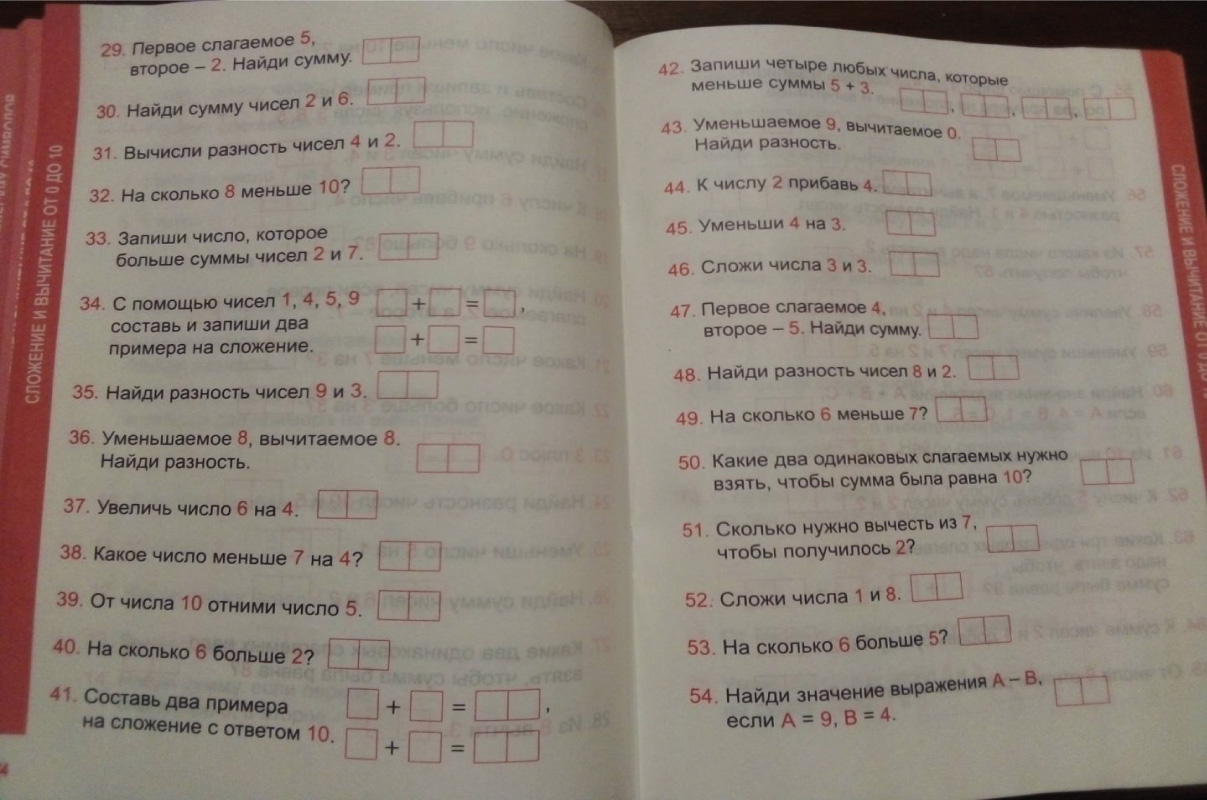 СЛОЖЕНИЕ И ВЫЧИТАНИЕ ОТ 0 ДО 10
29. Первое слагаемое 5,
второе – 2. Найди сумму.
30. Найди сумму чисел 2 и 6.
31. Вычисли разность чисел 4 и 2.
32. На сколько 8 меньше 10?
33. Запиши число, которое
больше суммы чисел 2 и 7.
34. С помощью чисел 1, 4, 5, 9 + = ,
составь и запиши два
примера на сложение. + =
35. Найди разность чисел 9 и 3.
36. Уменьшаемое 8, вычитаемое 8.
Найди разность.
37. Увеличь число 6 на 4.
38. Какое число меньше 7 на 4?
39. От числа 10 отними число 5.
40. На сколько 6 больше 2?
41. Составь два примера + = ,
на сложение с ответом 10. + =
42. Запиши четыре любых числа, которые
меньше суммы 5 + 3. , , ,
43. Уменьшаемое 9, вычитаемое 0.
Найди разность.
44. К числу 2 прибавь 4.
45. Уменьши 4 на 3.
46. Сложи числа 3 и 3.
47. Первое слагаемое 4,
второе – 5. Найди сумму.
48. Найди разность чисел 8 и 2.
49. На сколько 6 меньше 7?
50. Какие два одинаковых слагаемых нужно
взять, чтобы сумма была равна 10?
51. Сколько нужно вычесть из 7,
чтобы получилось 2?
52. Сложи числа 1 и 8.
53. На сколько 6 больше 5?
54. Найди значение выражения А – В,
если А = 9, В = 4.
СЛОЖЕНИЕ И ВЫЧИТАНИЕ ОТ 0 ДО